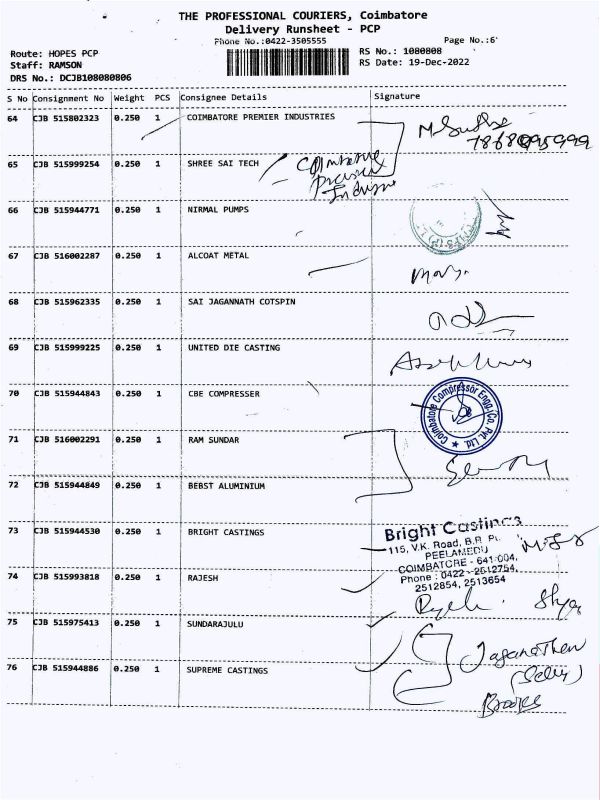 THE PROFESSIONAL COURIERS, Coimbatore
Delivery Runsheet - PCP
Phone No.:0422-3505555
Page No.:6
Route: HOPES PCP
Staff: RAMSON
DRS No.: DCJB108080806
RS No.: 1080808
RS Date: 19-Dec-2022
S No Consignment No Weight PCS Consignee Details Signature
64 CJB 515802323 0.250 1 COIMBATORE PREMIER INDUSTRIES
7868095999
65 CJB 515999254 0.250 1 SHREE SAI TECH
Coimbatore
Premier
66 CJB 515944771 0.250 1 NIRMAL PUMPS
67 CJB 516002287 0.250 1 ALCOAT METAL
68 CJB 515962335 0.250 1 SAI JAGANNATH COTSPIN
69 CJB 515999225 0.250 1 UNITED DIE CASTING
70 CJB 515944843 0.250 1 CBE COMPRESSER
Coimbatore Compressor Engg.Co. Pvt. Ltd.
71 CJB 516002291 0.250 1 RAM SUNDAR
72 CJB 515944849 0.250 1 BEBST ALUMINIUM
73 CJB 515944530 0.250 1 BRIGHT CASTINGS
Bright Castings
115, V.K. Road, B.R. P
PEELAMEDU
COIMBATORE - 641 004.
Phone : 0422 - 2512754,
2512854, 2513654
74 CJB 515993818 0.250 1 RAJESH
75 CJB 515975413 0.250 1 SUNDARAJULU
Jaganathan
76 CJB 515944886 0.250 1 SUPREME CASTINGS